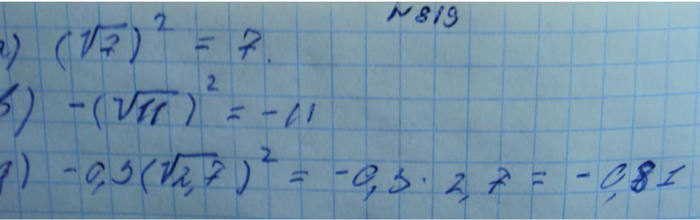 №819
а) (√7)² = 7.
в) -(√11)² = -11
д) -0,3(√2,7)² = -0,3 · 2,7 = -0,81